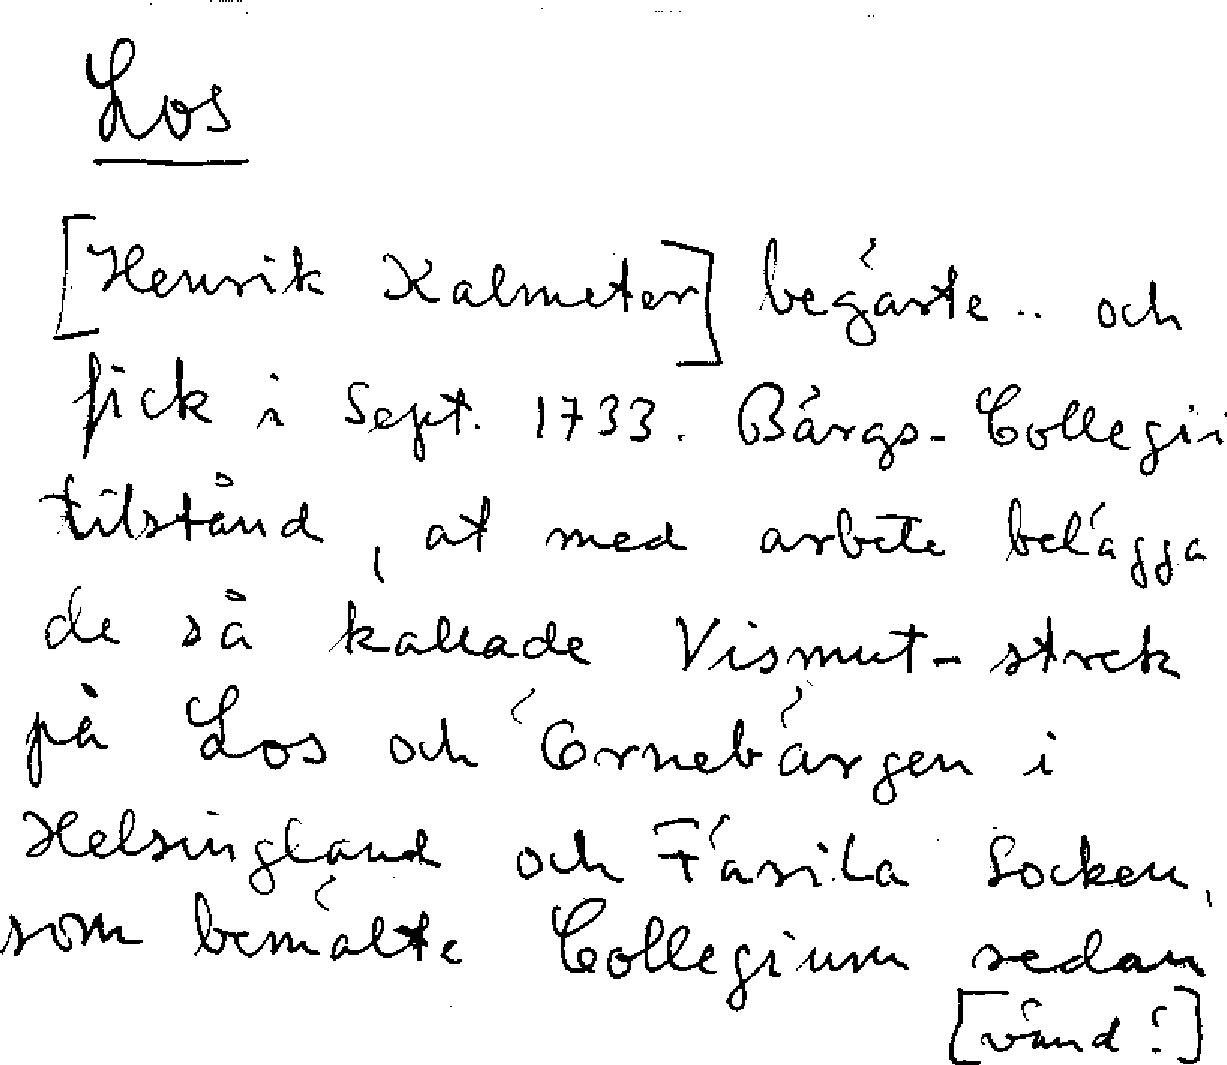 Los
[Henrik Kalmeter] begärte .. och
fick i Sept. 1733. Bärgs-Collegii
tilstånd, at med arbete belägga
de så kallade Vismut-streck
på Los och Örnebärgen i
Helsingland och Färila Socken,
som bemälte Collegium sedan
[vänd!]